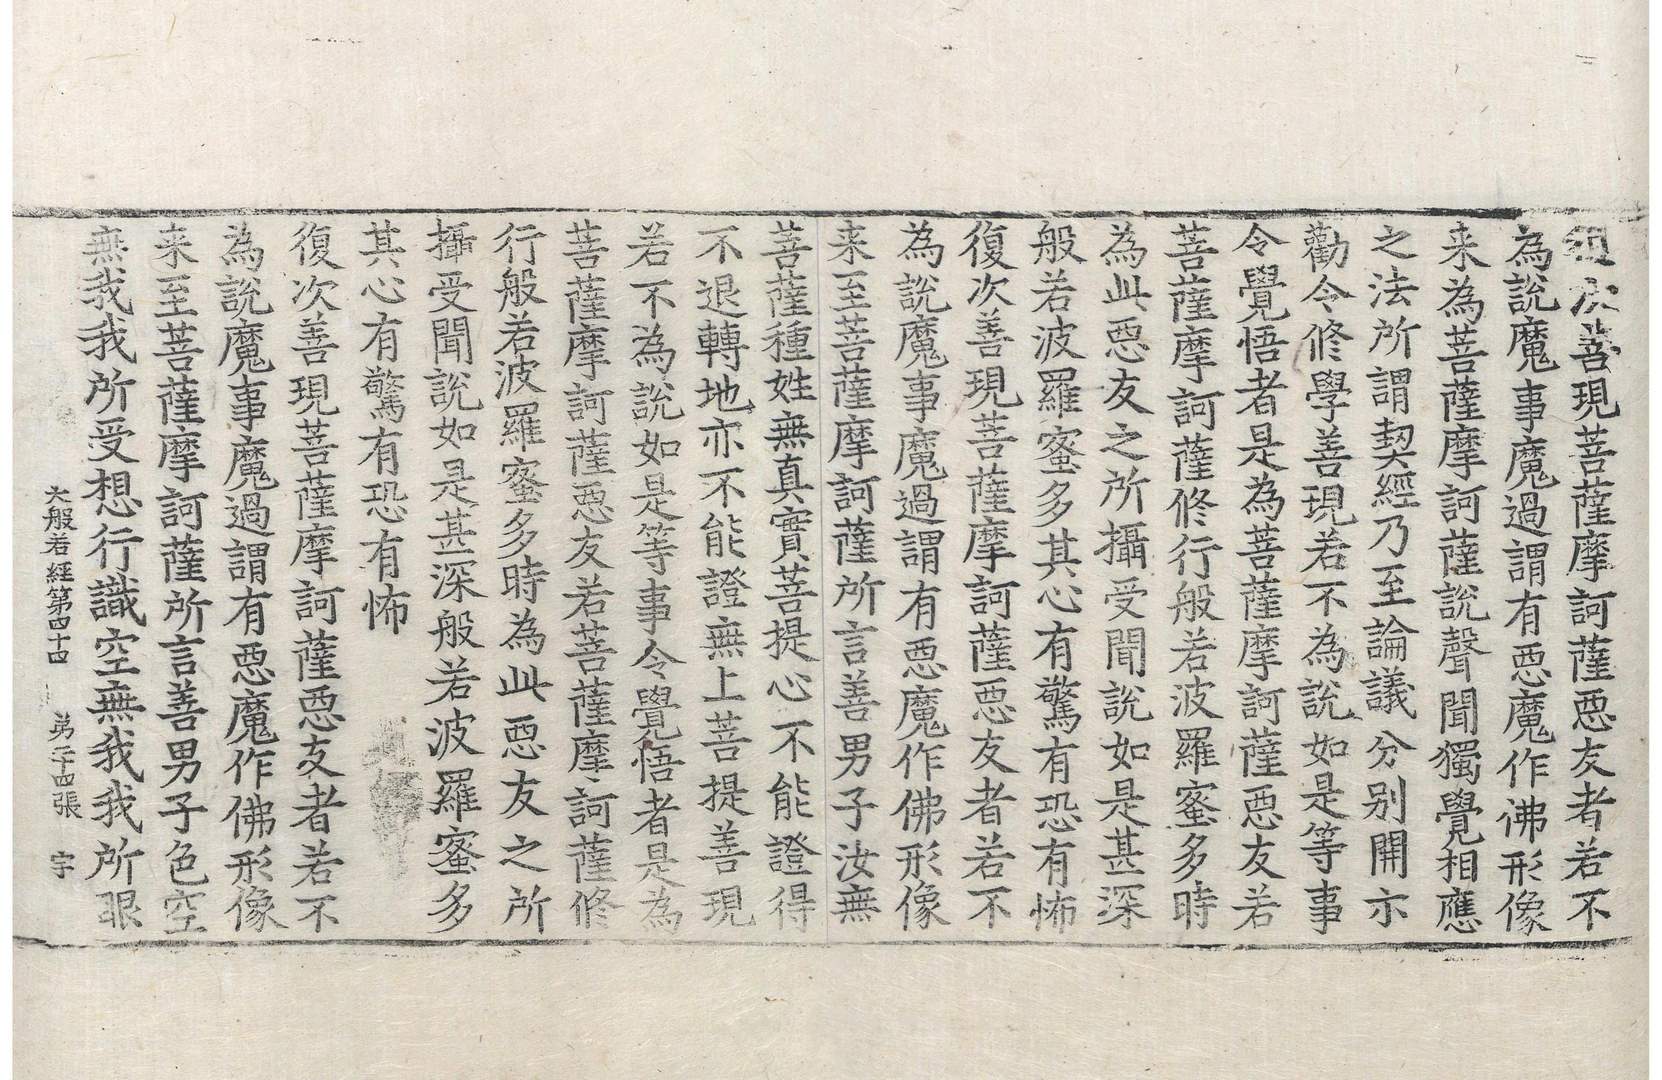 復次善現菩薩摩訶薩惡友者若不
為說魔事魔過謂有惡魔作佛形像
来為菩薩摩訶薩說聲聞獨覺相應
之法所謂契經乃至論議分別開示
勸令修學善現若不為說如是等事
令覺悟者是為菩薩摩訶薩惡友若
菩薩摩訶薩修行般若波羅蜜多時
為此惡友之所攝受聞說如是甚深
般若波羅蜜多其心有驚有恐有怖
復次善現菩薩摩訶薩惡友者若不
為說魔事魔過謂有惡魔作佛形像
来至菩薩摩訶薩所言善男子汝無
菩薩種姓無真實菩提心不能證得
不退轉地亦不能證無上菩提善現
若不為說如是等事令覺悟者是為
菩薩摩訶薩惡友若菩薩摩訶薩修
行般若波羅蜜多時為此惡友之所
攝受聞說如是甚深般若波羅蜜多
其心有驚有恐有怖
復次善現菩薩摩訶薩惡友者若不
為說魔事魔過謂有惡魔作佛形像
来至菩薩摩訶薩所言善男子色空
無我我所受想行識空無我我所眼
大般若經第四十四 第二十四張 宇